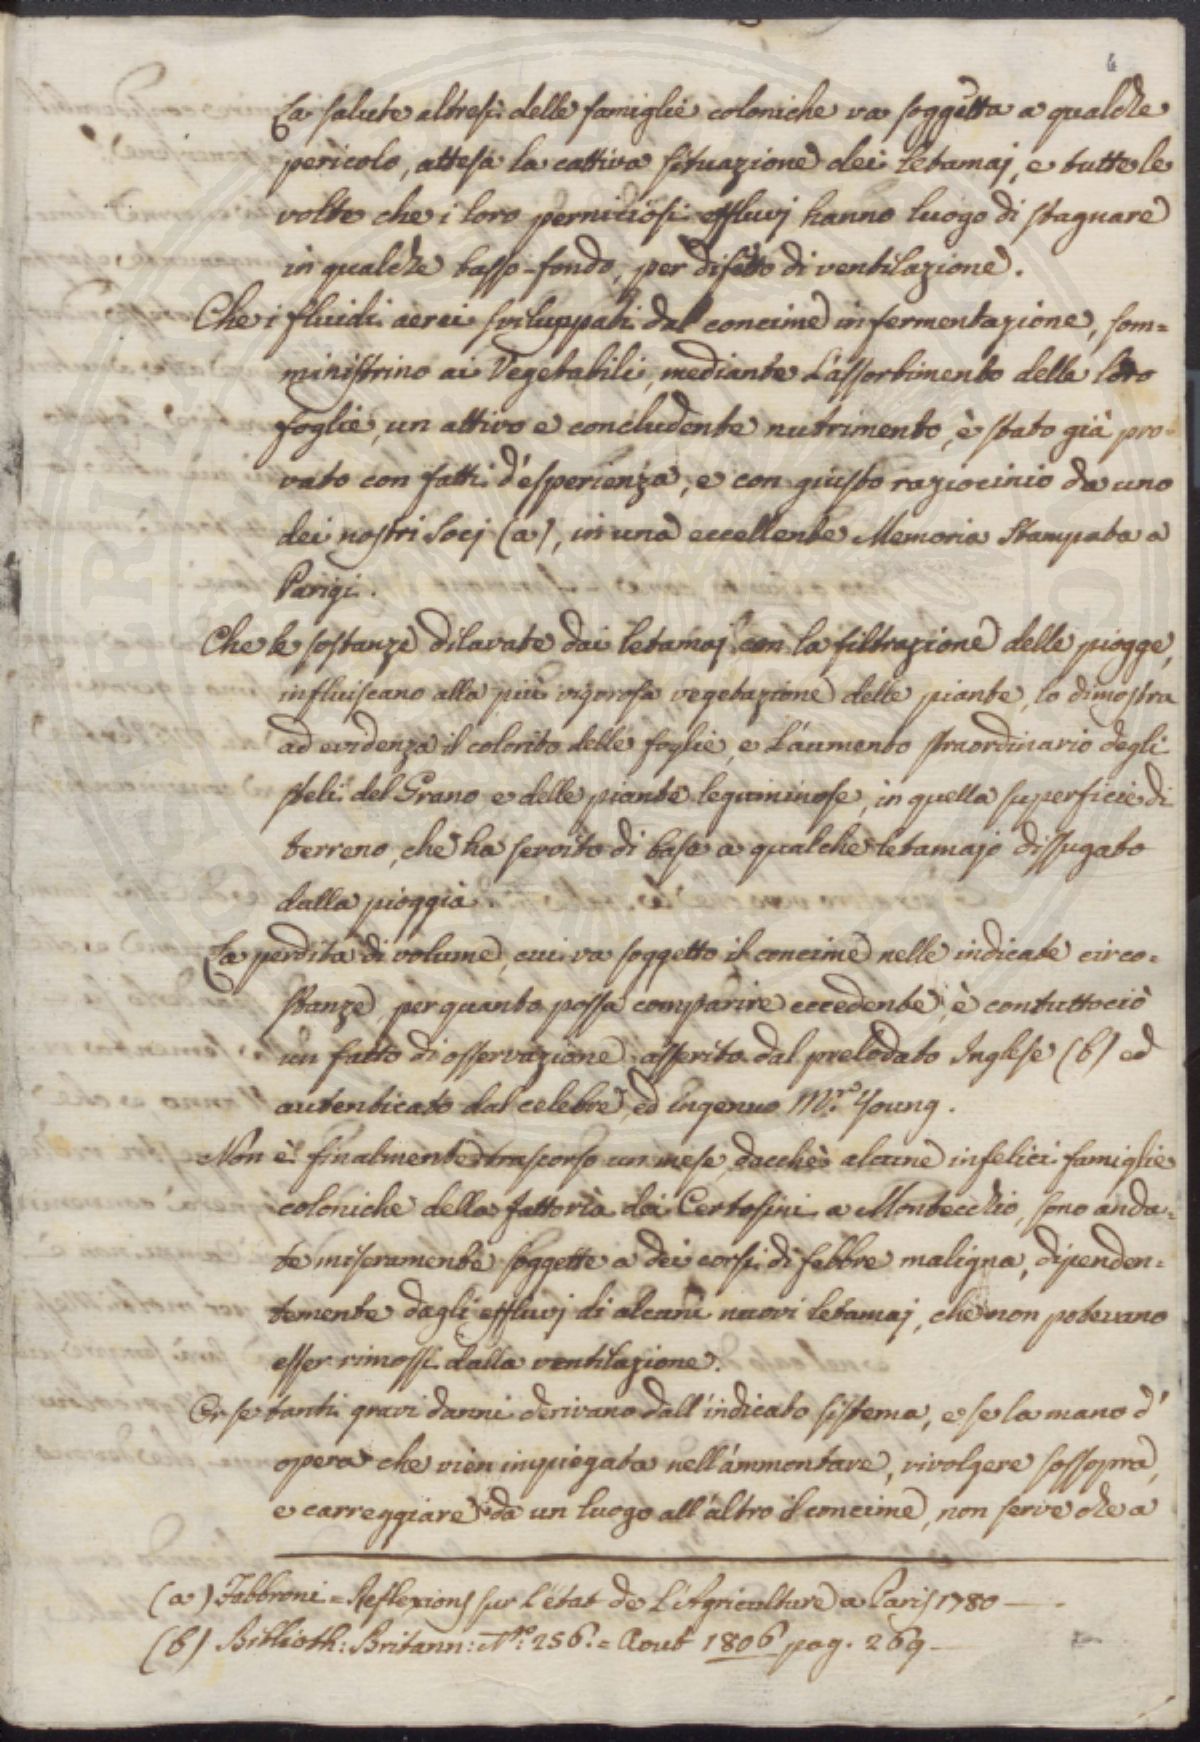 6
La salute altresì delle famiglie coloniche va soggetta a qualche
pericolo, attesa la cattiva situazione dei letamaj, e tutte le
volte che i loro perniciosi effluvj hanno luogo di stagnare
in qualche basso-fondo, per difetto di ventilazione.
Che i fluidi aerei sviluppati dal concime in fermentazione, som=
ministrino ai Vegetabili, mediante l'assorbimento delle loro
foglie, un attivo e concludente nutrimento, è stato già pro=
vato con fatti d'esperienza, e con giusto raziocinio da uno
dei nostri Socj (a), in una eccellente Memoria Stampata a
Parigi.
Che le sostanze dilavate dai letamaj con la filtrazione delle piogge,
influiscano alla più vigorosa vegetazione delle piante, lo dimostra
ad evidenza il colorito delle foglie, e l'aumento straordinario degli
steli del Grano e delle piante leguminose, in quella superficie di
terreno, che ha servito di base a qualche letamajo dissugato
dalla pioggia.
La perdita di volume, cui va soggetto il concime nelle indicate circo=
stanze, per quanto possa comparire eccedente, è contuttociò
un fatto di osservazione asserito dal prelodato Inglese (b) ed
autenticato dal celebre, ed ingenuo M.r Young.
Non è finalmente trascorso un mese, dacchè alcune infelici famiglie
coloniche della fattoria dei Certosini a Montecchio, sono anda=
te miseramente soggette a dei corsi di febbre maligna, dipenden=
temente dagli effluvj di alcuni nuovi letamaj, che non potevano
esser rimossi dalla ventilazione.
Or se tanti gravi danni derivano dall'indicato sistema, e se la mano d'
opera che vien impiegata nell'ammontare, rivolgere sossopra,
e carreggiare da un luogo all'altro il concime, non serve che a
(a) Fabbroni = Reflexions sur l'état de l'Agriculture a Paris 1780 —.
(b) Biblioth: Britann: N.ro 256. = Aout 1806 pag. 269 —